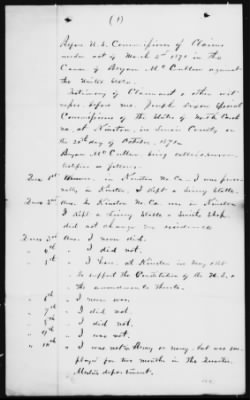 (1)
Before U.S. Commissioners of Claims
under act of March 3rd 1871 in the
Case of Bryan McCullen against
the United States.
Testimony of Claimant & other wit
nesses before me, Joseph special
Commissioner of the State of North Caroli
na, at Kinston, in Lenoir County on
the 20th day of October, 187
Bryan McCullen being called & sworn
testifies as follows:
1st Answer. in Kinston No Ca. I was
in Kinston, I kept a Livery Stable.
2nd Ans. In Kinston No Ca. in Kinston
I kept a Livery Stable &
did not change my residence
3rd Ans. I never did.
" 4th " I did not.
" 5th " I have, at Kinston in
to support the Constitution of the U.S. &
the amendments thereto.
" 6th " I never was.
" 7th " I did not.
" 8th " I did not.
" 9th " I was not.
" 10th " I was not in Army or navy, but was em
ployed for two months in the Quarter
Masters department.